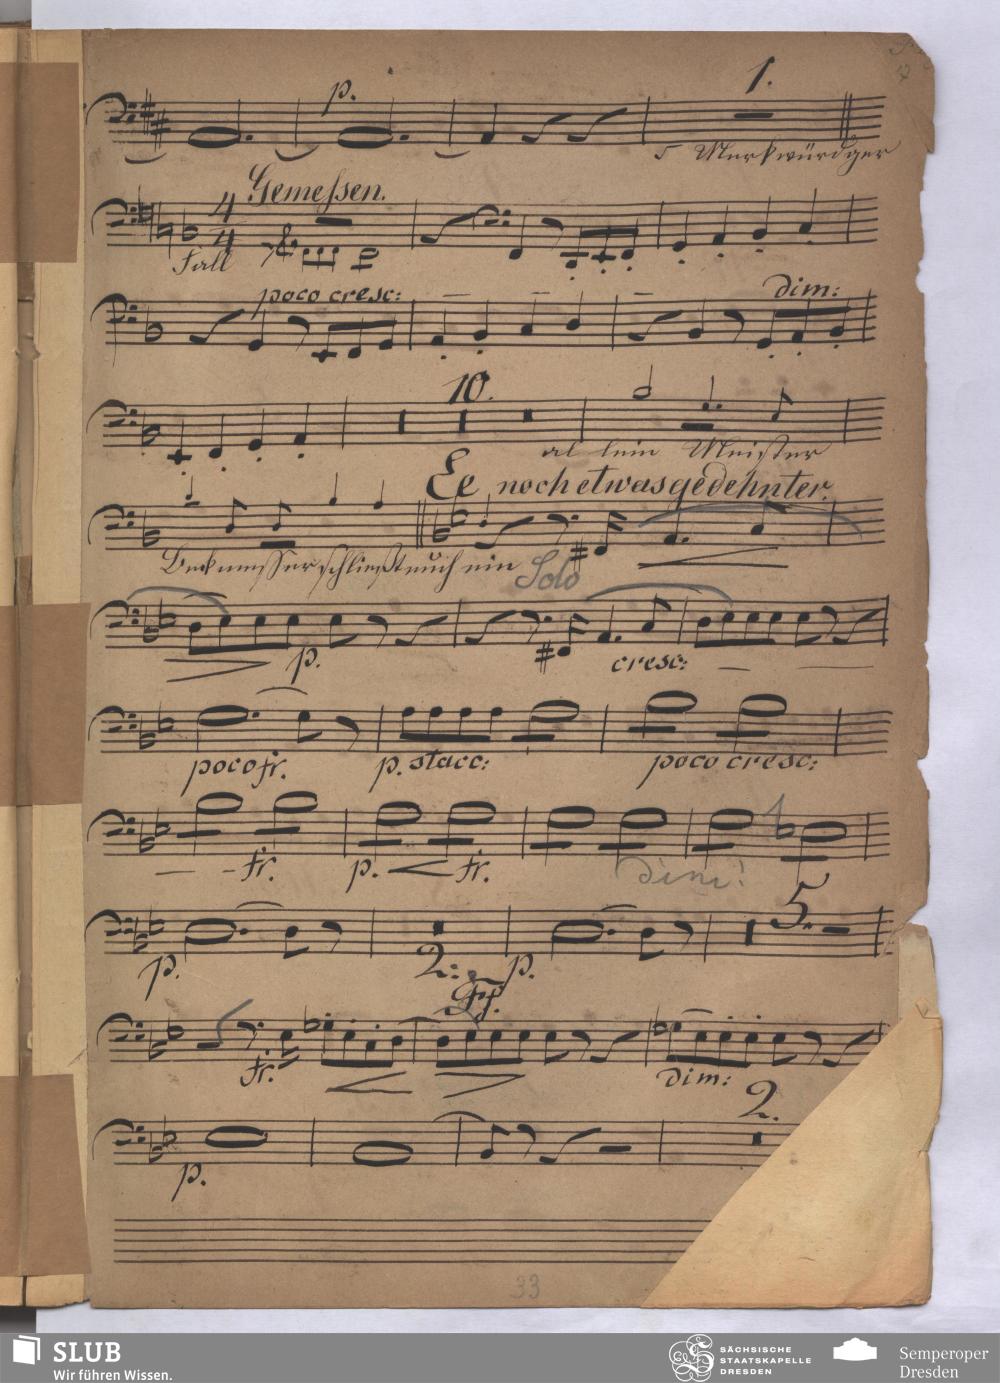 p. 1.
5 Merkwürdger
Gemeßen.
4
4
Fall
poco cresc: dim:
10.
al lein Meister
Ee noch etwas gedehnter.
Beckmesser schließt euch ein Solo
p. cresc:
poco fr. p. stacc: poco cresc:
fr. p. fr. dim:
5.
p. 2. p.
fr. dim:
2.
p.
33
SLUB
Wir führen Wissen.
SÄCHSISCHE
STAATSKAPELLE
DRESDEN
Semperoper
Dresden